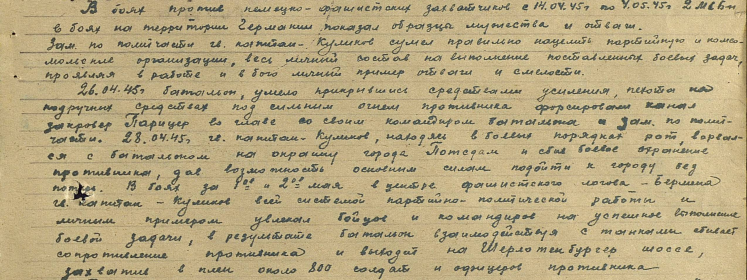 В боях против немецко-фашистских захватчиков с 14.04.45г по 4.05.45г 2 МСБ-н
в боях на территории Германии показал образцы мужества и отваги.
Зам. по политчасти гв. капитан-Куликов сумел правильно нацелить партийную и комсо-
мольские организации, весь личный состав на выполнение поставленных боевых задач,
проявляя в работе и в бою личный пример отваги и смелости.
26.04.45г батальон, умело прикрывшись средствами усиления, пехота на
подручных средствах под сильным огнем противника форсировали канал
во главе со своим командиром батальона и зам. по полит-
части. 28.04.45г. гв. капитан-Куликов, находясь в боевых порядках рот, ворвал-
ся с батальоном на окраину города Потсдам и сбив боевое охранение
противника, дав возможность основным силам подойти к городу без
В боях за 1ое и 2ое мая в центре фашистского логова-Берлина
гв. капитан-Куликов всей системой партийно-политической работы и
личным примером увлекал бойцов и командиров на успешное выполнение
боевой задачи, в результате батальон взаимодействуя с танками сбивает
сопротивление противника и выходит на Шерлотенбургер шоссе,
захватив в плен около 800 солдат и офицеров противника